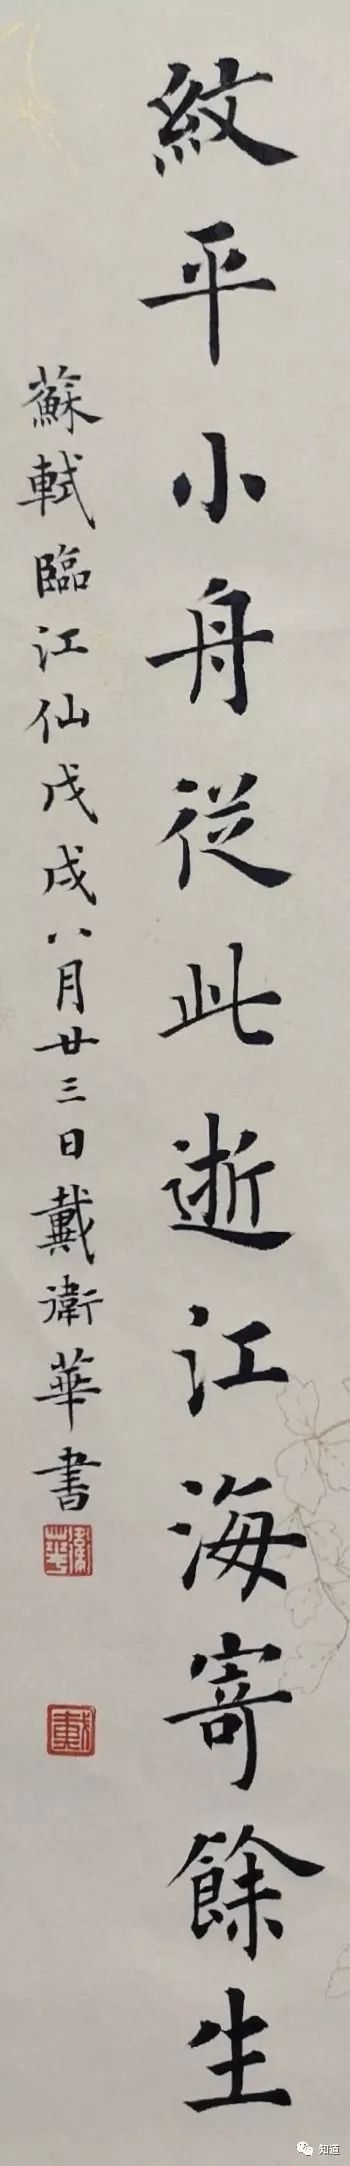 紋平小舟從此逝江海寄餘生
蘇軾臨江仙戊戌八月廿三日戴衛華書
衛華
戴
知道